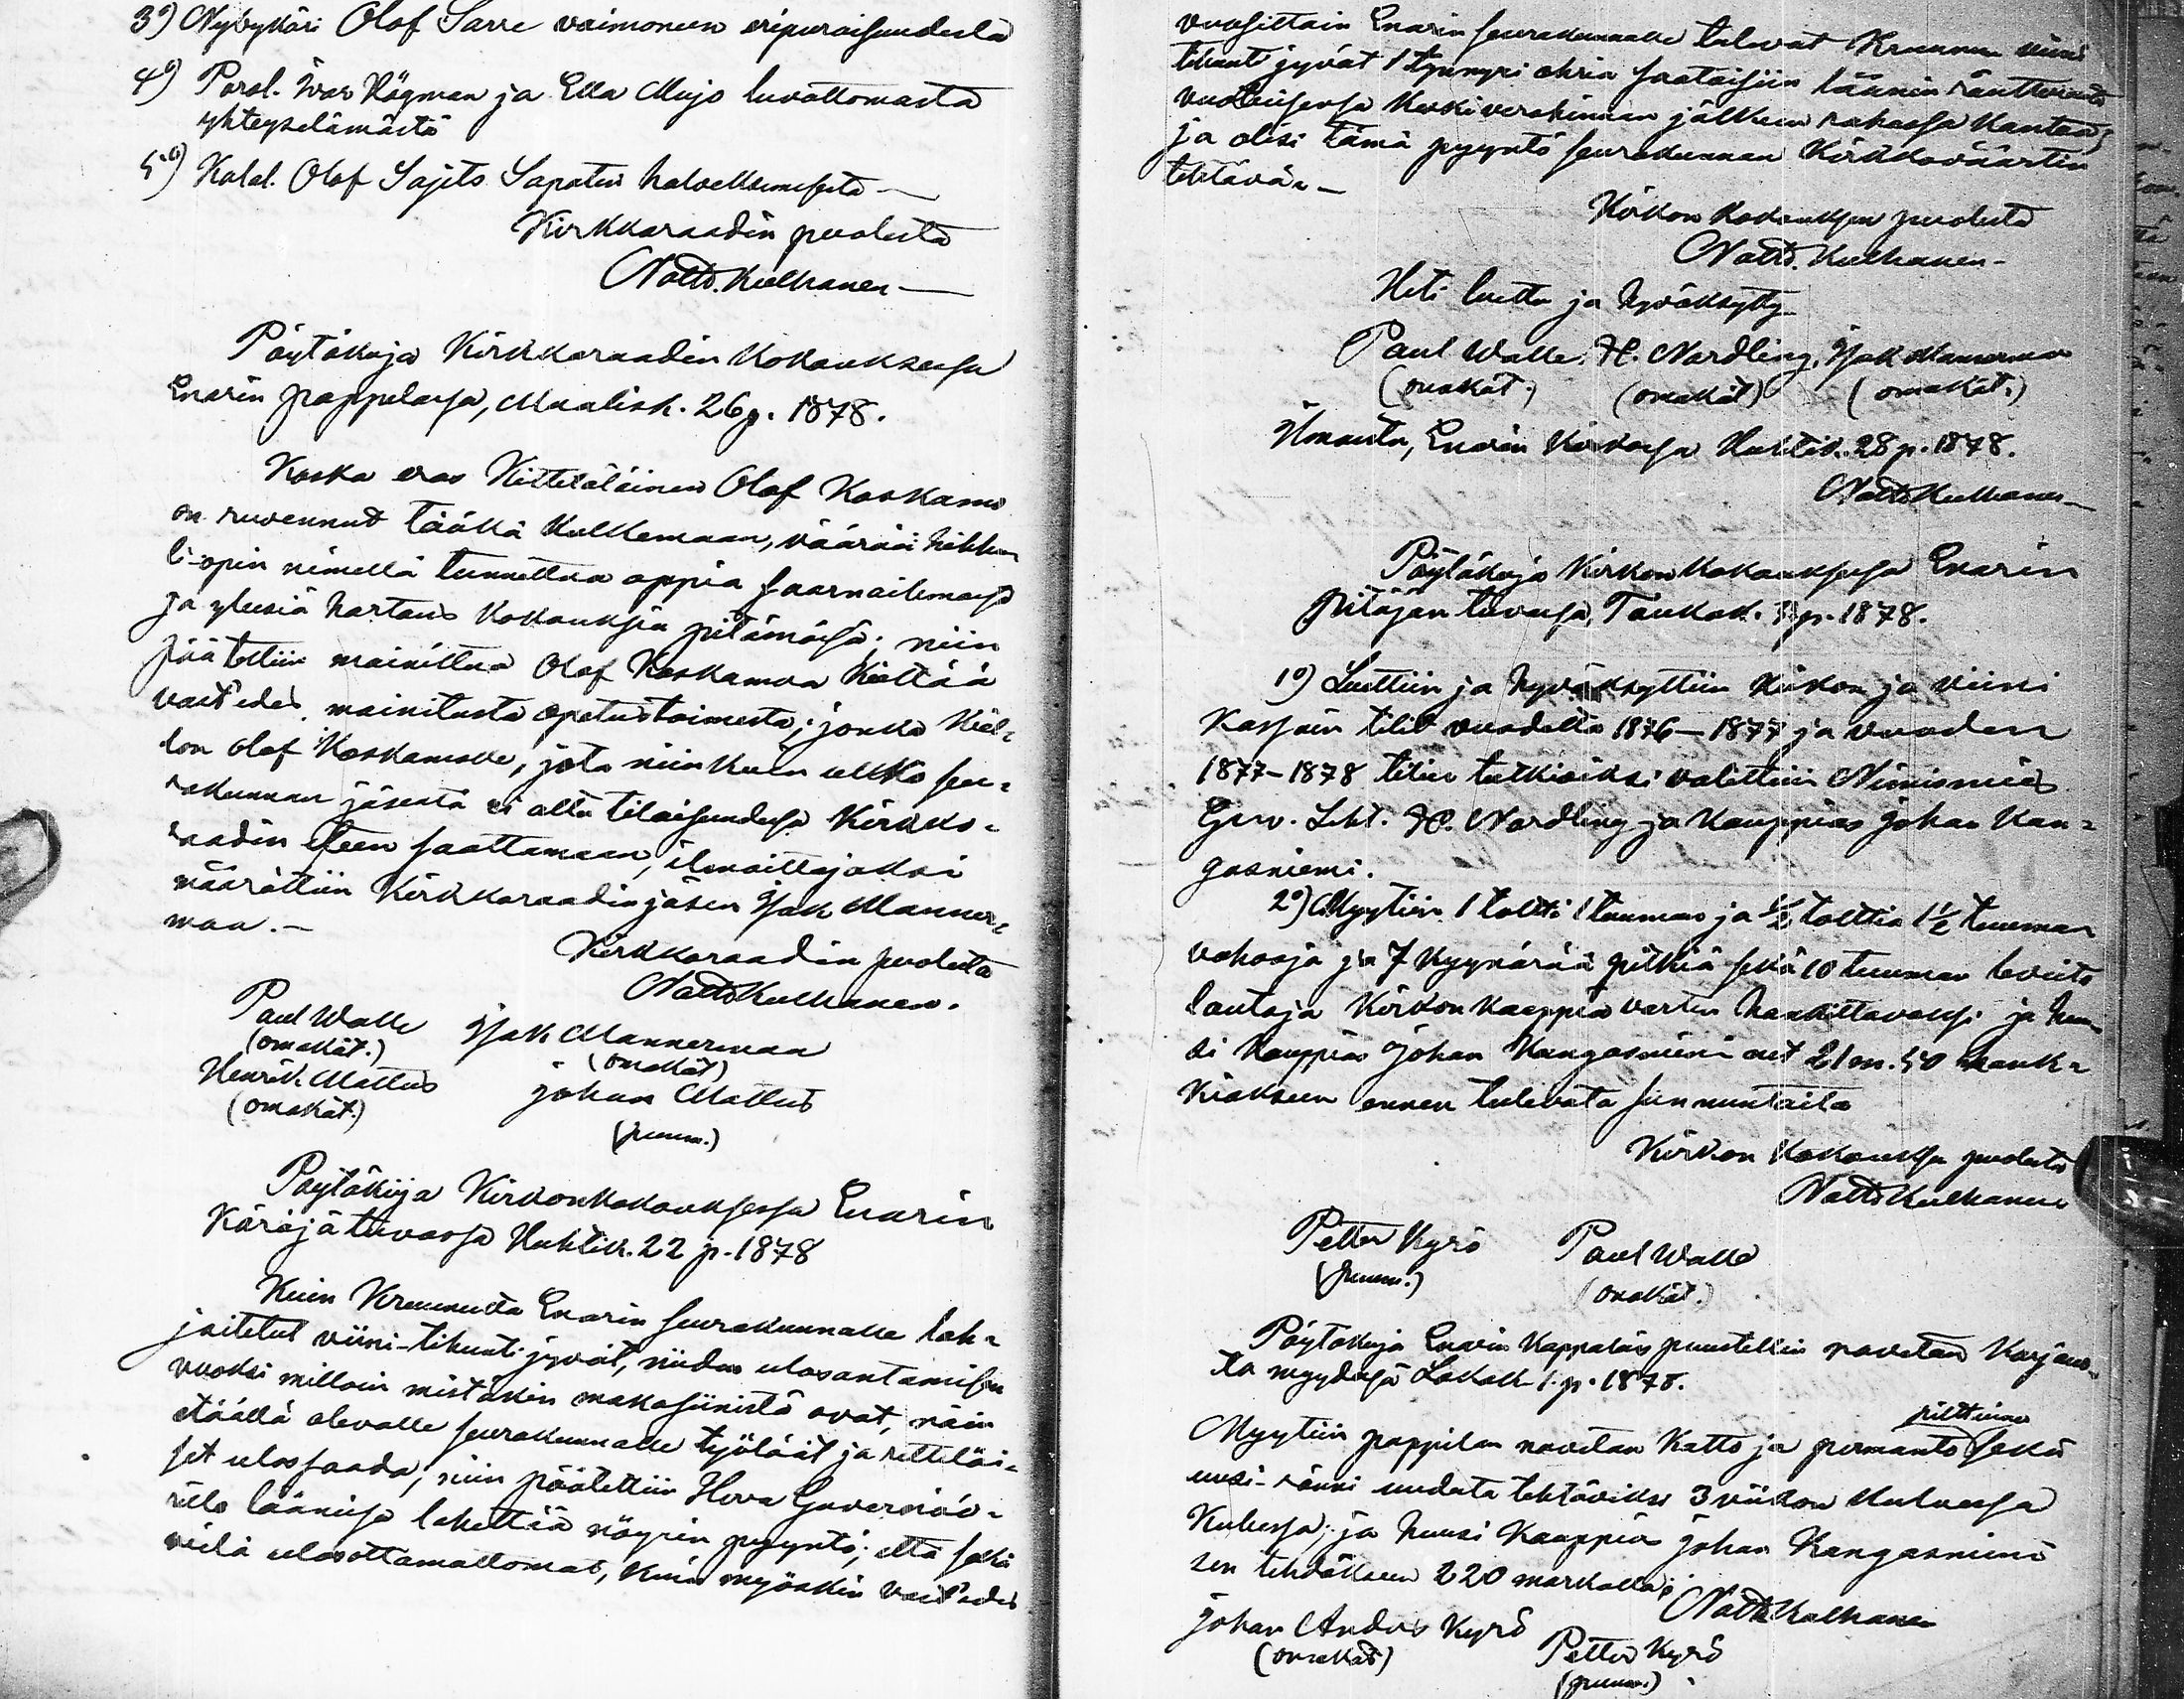 3o) Nybykäri Olof Sarre vaimoneen eripuraisuudesta
4o) Porol. Iwar Högman ja Ella Mujo luvattomasta
yhteyselämästä
5o) Kalal. Olof Sajets Sapatin halveksimisesta —
Kirkkoraadin puolesta
Natts. Kulkanen —
Pöytäkirja Kirkkoraadin Kokouksessa
Enarin pappilassa, Maalisk. 26 p. 1878.
Koska eräs Kitteläläinen Olof Koskamo
on ruvennut täällä kulkemaan, väärää hihhu
li-opin nimellä tunnettua oppia saarnailemassa
ja yleisiä hartaus kokouksia pitämässä; niin
päätettiin mainittua Olof Koskamoa kieltää
vast'edes mainitusta opetustoimesta; jonka kiel-
lon Olof Koskamolle, jota niinkuin ulkko seu-
rakunnan jäsentä ei oltu tilaisuudessa Kirkko-
raadin eteen saattamaan, ilmoittajaksi
määrättiin Kirkkoraadin jäsen Isak Manner-
maa. —
Kirkkoraadin puolesta
Natts Kulkanen.
Paul Walle Isak Mannermaa
(omakät.) (omakät)
Henrik Mattus Johan Mattus
(omakät.) (puum.)
Pöytäkirja Kirkonkokouksessa Enarin
Käräjätuvassa Huhtik. 22 p. 1878
Kuin Kruunulta Enarin seurakunnalle lah-
joitetut viini-tihunti jyvät, niiden ulosantamisen
vuoksi milloin mistäkin makasiinista ovat, näin
etäällä olevalle seurakunnalle työläät ja retteläi-
set ulossaada, niin päätettiin Herra Guvernöö-
rille läänissä lähettää nöyrin pyyntö; että sekä
vielä ulosottamattomat, kuin myöskin vast'edes
vuosittain Enarin seurakunnalle tulevat Kruunun viini
tihunt jyvät 1 tynnyri ohria saataisiin läänin ränttöristä
vuotuisessa keskiverohinnan jälkeen rahassa kantaa;
ja olisi tämä pyyntö seurakunnan Kirkkoväärtin
tehtävä. —
Kirkon kokouksen puolesta
Natts. Kulkanen —
Heti luettu ja hyväksytty
Paul Walle. H. Nordling, Isak Mannermaa
(omakät.) (omakät) (omakät.)
Ilmoitettu, Enarin Kirkossa Huhtik. 28 p. 1878.
Natts Kulkanen —
Pöytäkirja Kirkonkokouksessa Enarin
Pitäjän tuvassa, Toukok. p. 1878.
1o) Luettiin ja hyväksyttiin kirkon ja viini
Kassain tilit vuodelta 1876—1877 ja vuoden
1877—1878 tilien tutkioiksi valittiin Nimismies
Guv. Sekt. H. Nordling ja Kauppias Johan Kan-
gasniemi.
2o) Myytiin 1 toltti 1 tuuman ja ½ tolttia 1½ tuuman
vahvoja ja 7 kyynärää pitkiä sekä 10 tuuman leveitä
lautoja Kirkon kaappia varten hankittavaksi ja huu-
si Kauppias Johan Kangasniemi net 21 m. 50 hank-
kiakseen ennen tulevata sunnuntaita
Kirkon kokouksen puolesta
Natts Kulkanen
Petter Kyrö Paul Walle
(puum.) (omakät.)
Pöytäkirja Enarin Kappalais puustellin navetan korjaus-
ta myydessä Lokak. 1. p. 1878.
Myytiin pappilan navetan katto ja permanto pilttuineen sekä
uusi-ränni uudesta tehtäviksi 3 viikon kuluessa
kulussa; ja huusi Kauppias Johan Kangasniemi
sen tehdäkseen 220 markalla;
Natts Kulkanen
Johan Anders Kyrö Petter Kyrö
(omakät) (puum.)